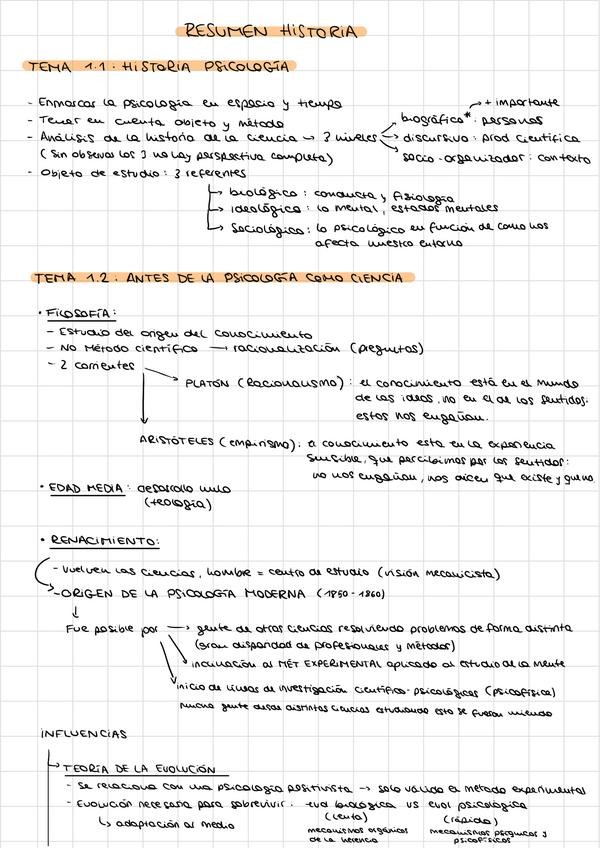 RESUMEN HISTORIA
TEMA 1.1: HISTORIA PSICOLOGÍA
- Enmarcar la psicología en espacio y tiempo
- Tener en cuenta objeto y método
- Análisis de la historia de la ciencia → 3 niveles
biográfico*: personas
→ + importante
→ discursivo: prod científica
socio-organizador: contexto
(Sin observar los 3 no hay perspectiva completa)
- Objeto de estudio: 3 referentes
→ biológico: conducta y fisiología
→ ideológico: lo mental, estados mentales
→ Sociológico: lo psicológico en función de como nos
afecta nuestro entorno
TEMA 1.2: ANTES DE LA PSICOLOGÍA COMO CIENCIA
• FILOSOFÍA:
- Estudio del origen del conocimiento
- NO Método científico → racionalización (preguntas)
- 2 corrientes
PLATÓN (Racionalismo): el conocimiento está en el mundo
de las ideas, no en el de los sentidos:
estos nos engañan.
ARISTÓTELES (empirismo): el conocimiento esta en la experiencia
sensible, que percibimos por los sentidos:
no nos engañan, nos dicen que existe y que no
• EDAD MEDIA: desarrollo nulo
(teología)
• RENACIMIENTO:
- Vuelven las ciencias, hombre = centro de estudio (visión mecanicista)
- ORIGEN DE LA PSICOLOGÍA MODERNA (1850-1860)
↓
Fue posible por → gente de otras ciencias resolviendo problemas de forma distinta
(gran disparidad de profesionales y métodos)
inclinación al MÉT EXPERIMENTAL aplicado al estudio de la mente
inicio de líneas de investigación científico-psicológicas (psicofísica)
mucha gente desde distintas ciencias estudiando esto se fueron uniendo
INFLUENCIAS
→ TEORÍA DE LA EVOLUCIÓN
- Se relaciona con una psicología positivista → solo válido el método experimental
- Evolución necesaria para sobrevivir: evol biológica vs evol psicológica
↳ adaptación al medio
(lenta)
(rápida)
mecanismos orgánicos
de la herencia
mecanismos psíquicos y
psicofísicos